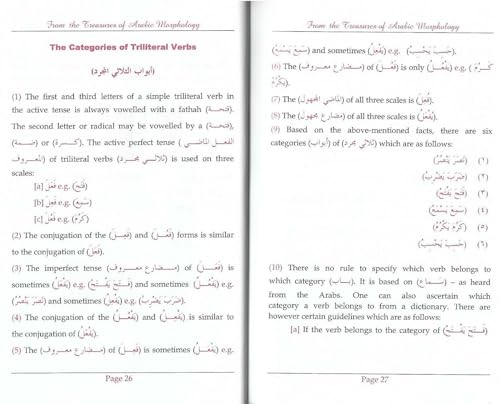 From the Treasures of Arabic Morphology
The Categories of Triliteral Verbs
(أبواب الثلاثي المجرد)
(1) The first and third letters of a simple triliteral verb in
the active tense is always vowelled with a fathah (فتحة).
The second letter or radical may be vowelled by a (فتحة),
(ضمة) or (كسرة). The active perfect tense (الفعل الماضي
المعروف) of triliteral verbs (ثلاثي مجرد) is used on three
scales:
[a] فَعَلَ e.g. (فَتَحَ)
[b] فَعِلَ e.g. (سَمِعَ)
[c] فَعُلَ e.g. (كَرُمَ)
(2) The conjugation of the (فَعِلَ) and (فَعُلَ) forms is similar
to the conjugation of (فَعَلَ).
(3) The imperfect tense (مضارع معروف) of (فَعَلَ) is
sometimes (يَفْعَلُ) e.g. (فَتَحَ يَفْتَحُ) and sometimes (يَفْعُلُ) e.g.
(نَصَرَ يَنْصُرُ) and sometimes (يَفْعِلُ) e.g. (ضَرَبَ يَضْرِبُ).
(4) The conjugation of the (يَفْعُلُ) and (يَفْعِلُ) is similar to
the conjugation of (يَفْعَلُ).
(5) The (مضارع معروف) of (فَعِلَ) is sometimes (يَفْعَلُ) e.g.
Page 26
From the Treasures of Arabic Morphology
(سَمِعَ يَسْمَعُ) and sometimes (يَفْعِلُ) e.g. (حَسِبَ يَحْسِبُ).
(6) The (مضارع معروف) of (فَعُلَ) is only (يَفْعُلُ) e.g. (كَرُمَ
يَكْرُمُ).
(7) The (الماضي المجهول) of all three scales is (فُعِلَ).
(8) The (مضارع مجهول) of all three scales is (يُفْعَلُ).
(9) Based on the above-mentioned facts, there are six
categories (أبواب) of (ثلاثي مجرد) which are as follows:
(١) (نَصَرَ يَنْصُرُ)
(٢) (ضَرَبَ يَضْرِبُ)
(٣) (فَتَحَ يَفْتَحُ)
(٤) (سَمِعَ يَسْمَعُ)
(٥) (كَرُمَ يَكْرُمُ)
(٦) (حَسِبَ يَحْسِبُ)
(10) There is no rule to specify which verb belongs to
which category (باب). It is based on (سماع) – as heard
from the Arabs. One can also ascertain which
category a verb belongs to from a dictionary. There are
however certain guidelines which are as follows:
[a] If the verb belongs to the category of (فَتَحَ يَفْتَحُ)
Page 27